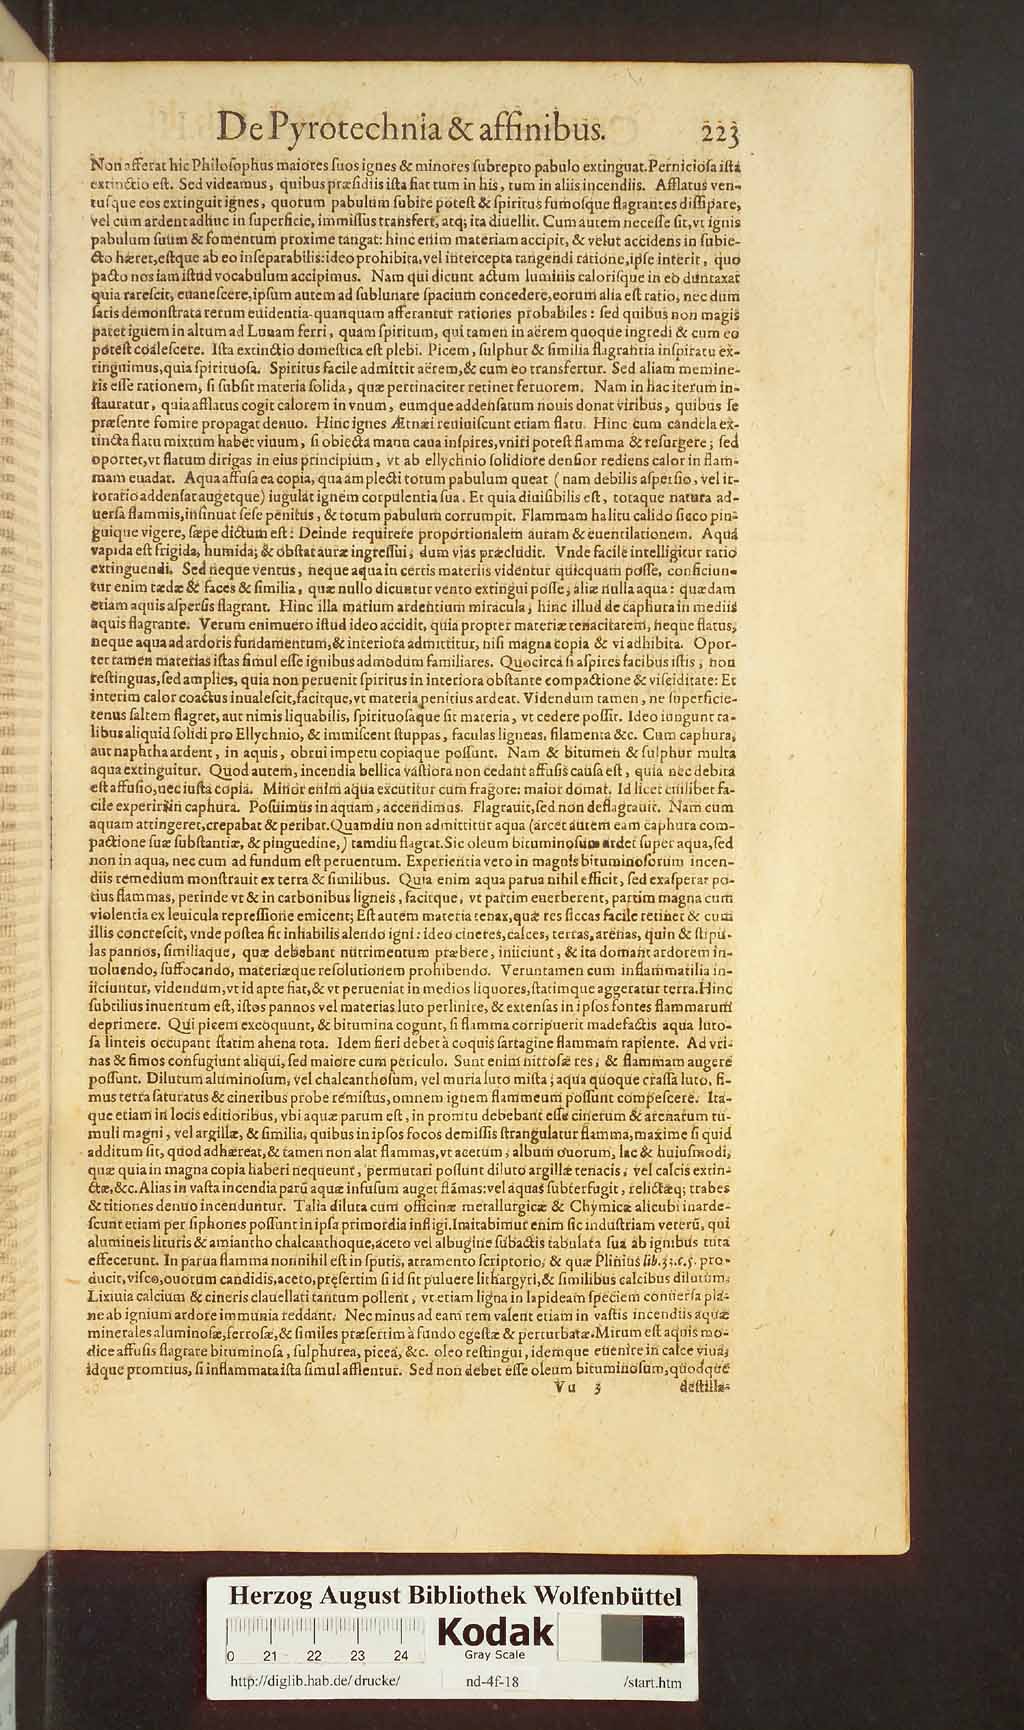 De Pyrotechnia & affinibus. 223
Non afferat hic Philoſophus maiores ſuos ignes & minores ſubrepto pabulo extinguat. Pernicioſa iſta
extinctio eſt. Sed videamus, quibus præſidiis iſta fiat tum in his, tum in aliis incendiis. Afflatus ven-
tuſque eos extinguit ignes, quorum pabulum ſubire poteſt & ſpiritus fumoſque flagrantes diſſipare,
vel cum ardent adhuc in ſuperficie, immiſſus transfert, atq; ita diuellit. Cum autem neceſſe ſit, vt ignis
pabulum ſuum & fomentum proxime tangat: hinc enim materiam accipit, & velut accidens in ſubie-
cto hæret, eſtque ab eo inſeparabilis: ideo prohibita, vel intercepta tangendi ratione, ipſe interit, quo
pacto nos iam iſtud vocabulum accipimus. Nam qui dicunt actum luminis caloriſque in eo duntaxat
quia rareſcit, euaneſcere, ipſum autem ad ſublunare ſpacium concedere, eorum alia eſt ratio, nec dum
ſatis demonſtrata rerum euidentia quanquam afferantur rationes probabiles: ſed quibus non magis
patet ignem in altum ad Lunam ferri, quam ſpiritum, qui tamen in aërem quoque ingredi & cum eo
poteſt coaleſcere. Iſta extinctio domeſtica eſt plebi. Picem, ſulphur & ſimilia flagrantia inſpiratu ex-
tinguimus, quia ſpirituoſa. Spiritus facile admittit aërem, & cum eo transfertur. Sed aliam memine-
ris eſſe rationem, ſi ſubſit materia ſolida, quæ pertinaciter retinet feruorem. Nam in hac iterum in-
ſtauratur, quia afflatus cogit calorem in vnum, eumque addenſatum nouis donat viribus, quibus ſe
præſente fomite propagat denuo. Hinc ignes Ætnæi reuiuiſcunt etiam flatu. Hinc cum candela ex-
tincta flatu mixtum habet viuum, ſi obiecta manu caua inſpires, vniri poteſt flamma & reſurgere; ſed
oportet, vt flatum dirigas in eius principium, vt ab ellychnio ſolidiore denſior rediens calor in flam-
mam euadat. Aqua affuſa ea copia, qua amplecti totum pabulum queat (nam debilis aſperſio, vel ir-
roratio addenſat augetque) iugulat ignem corpulentia ſua. Et quia diuiſibilis eſt, totaque natura ad-
uerſa flammis, inſinuat ſeſe penitus, & totum pabulum corrumpit. Flammam halitu calido ſicco pin-
guique vigere, ſæpe dictum eſt: Deinde requirere proportionalem auram & euentilationem. Aqua
vapida eſt frigida, humida; & obſtat auræ ingreſſui, dum vias præcludit. Vnde facile intelligitur ratio
extinguendi. Sed neque ventus, neque aqua in certis materiis videntur quicquam poſſe, conficiun-
tur enim tædæ & faces & ſimilia, quæ nullo dicuntur vento extingui poſſe, aliæ nulla aqua: quædam
etiam aquis aſperſis flagrant. Hinc illa marium ardentium miracula, hinc illud de caphura in mediis
aquis flagrante. Verum enimuero iſtud ideo accidit, quia propter materiæ tenacitatem, neque flatus,
neque aqua ad ardoris fundamentum, & interiora admittitur, niſi magna copia & vi adhibita. Opor-
tet tamen materias iſtas ſimul eſſe ignibus admodum familiares. Quocirca ſi aſpires facibus iſtis, non
reſtinguas, ſed amplies, quia non peruenit ſpiritus in interiora obſtante compactione & viſciditate: Et
interim calor coactus inualeſcit, facitque, vt materia penitius ardeat. Videndum tamen, ne ſuperficie-
tenus ſaltem flagret, aut nimis liquabilis, ſpirituoſaque ſit materia, vt cedere poſſit. Ideo iungunt ta-
libus aliquid ſolidi pro Ellychnio, & immiſcent ſtuppas, faculas ligneas, filamenta &c. Cum caphura,
aut naphtha ardent, in aquis, obrui impetu copiaque poſſunt. Nam & bitumen & ſulphur multa
aqua extinguitur. Quod autem, incendia bellica vaſtiora non cedant affuſis cauſa eſt, quia nec debita
eſt affuſio, nec iuſta copia. Minor enim aqua excutitur cum fragore: maior domat. Id licet cuilibet fa-
cile experiri in caphura. Poſuimus in aquam, accendimus. Flagrauit, ſed non deflagrauit. Nam cum
aquam attingeret, crepabat & peribat. Quamdiu non admittitur aqua (arcet autem eam caphura com-
pactione ſuæ ſubſtantiæ, & pinguedine,) tamdiu flagrat. Sic oleum bituminoſum ardet ſuper aqua, ſed
non in aqua, nec cum ad fundum eſt peruentum. Experientia vero in magnis bituminoſorum incen-
diis remedium monſtrauit ex terra & ſimilibus. Quia enim aqua parua nihil efficit, ſed exaſperat po-
tius flammas, perinde vt & in carbonibus ligneis, facitque, vt partim euerberent, partim magna cum
violentia ex leuicula repreſſione emicent; Eſt autem materia tenax, quæ res ſiccas facile retinet & cum
illis concreſcit, vnde poſtea fit inhabilis alendo igni: ideo cineres, calces, terras, arenas, quin & ſtipu-
las pannos, ſimiliaque, quæ debebant nutrimentum præbere, iniiciunt, & ita domant ardorem in-
uoluendo, ſuffocando, materiæque reſolutionem prohibendo. Veruntamen cum inflammatilia in-
iiciuntur, videndum, vt id apte fiat, & vt perueniat in medios liquores, ſtatimque aggeratur terra. Hinc
ſubtilius inuentum eſt, iſtos pannos vel materias luto perlinire, & extenſas in ipſos fontes flammarum
deprimere. Qui picem excoquunt, & bitumina cogunt, ſi flamma corripuerit madefactis aqua luto-
ſa linteis occupant ſtatim ahena tota. Idem fieri debet à coquis ſartagine flammam rapiente. Ad vri-
nas & fimos confugiunt aliqui, ſed maiore cum periculo. Sunt enim nitroſæ res, & flammam augere
poſſunt. Dilutum aluminoſum, vel chalcanthoſum, vel muria luto miſta; aqua quoque craſſa luto, fi-
mus terra ſaturatus & cineribus probe remiſtus, omnem ignem flammeum poſſunt compeſcere. Ita-
que etiam in locis editioribus, vbi aquæ parum eſt, in promtu debebant eſſe cinerum & arenarum tu-
muli magni, vel argillæ, & ſimilia, quibus in ipſos focos demiſſis ſtrangulatur flamma, maxime ſi quid
additum ſit, quod adhæreat, & tamen non alat flammas, vt acetum, album ouorum, lac & huiuſmodi,
quæ quia in magna copia haberi nequeunt, permutari poſſunt diluto argillæ tenacis, vel calcis extin-
ctæ, &c. Alias in vaſta incendia parū aquæ infuſum auget flāmas: vel aquas ſubterfugit, relictæq; trabes
& titiones denuo incenduntur. Talia diluta cum officinæ metallurgicæ & Chymicæ alicubi inarde-
ſcunt etiam per ſiphones poſſunt in ipſa primordia infligi. Imitabimur enim ſic induſtriam veterū, qui
alumineis lituris & amiantho chalcanthoque, aceto vel albugine ſubactis tabulata ſua ab ignibus tuta
effecerunt. In parua flamma nonnihil eſt in ſputis, atramento ſcriptorio, & quæ Plinius lib. 33. c. 5. pro-
ducit, viſco, ouorum candidis, aceto, pręſertim ſi id ſit puluere lithargyri, & ſimilibus calcibus dilutum.
Lixiuia calcium & cineris clauellati tantum pollent, vt etiam ligna in lapideam ſpeciem conuerſa pla-
ne ab ignium ardore immunia reddant. Nec minus ad eam rem valent etiam in vaſtis incendiis aquæ
minerales aluminoſæ, ferroſæ, & ſimiles præſertim à fundo egeſtæ & perturbatæ. Mirum eſt aquis mo-
dice affuſis flagrare bituminoſa, ſulphurea, picea, &c. oleo reſtingui, idemque euenire in calce viua,
idque promtius, ſi inflammata iſta ſimul afflentur. Sed non debet eſſe oleum bituminoſum, quodque
Vu 3 deſtilla-
Herzog August Bibliothek Wolfenbüttel
0 21 22 23 24
Kodak
Gray Scale
http://diglib.hab.de/drucke/ nd-4f-18 /start.htm